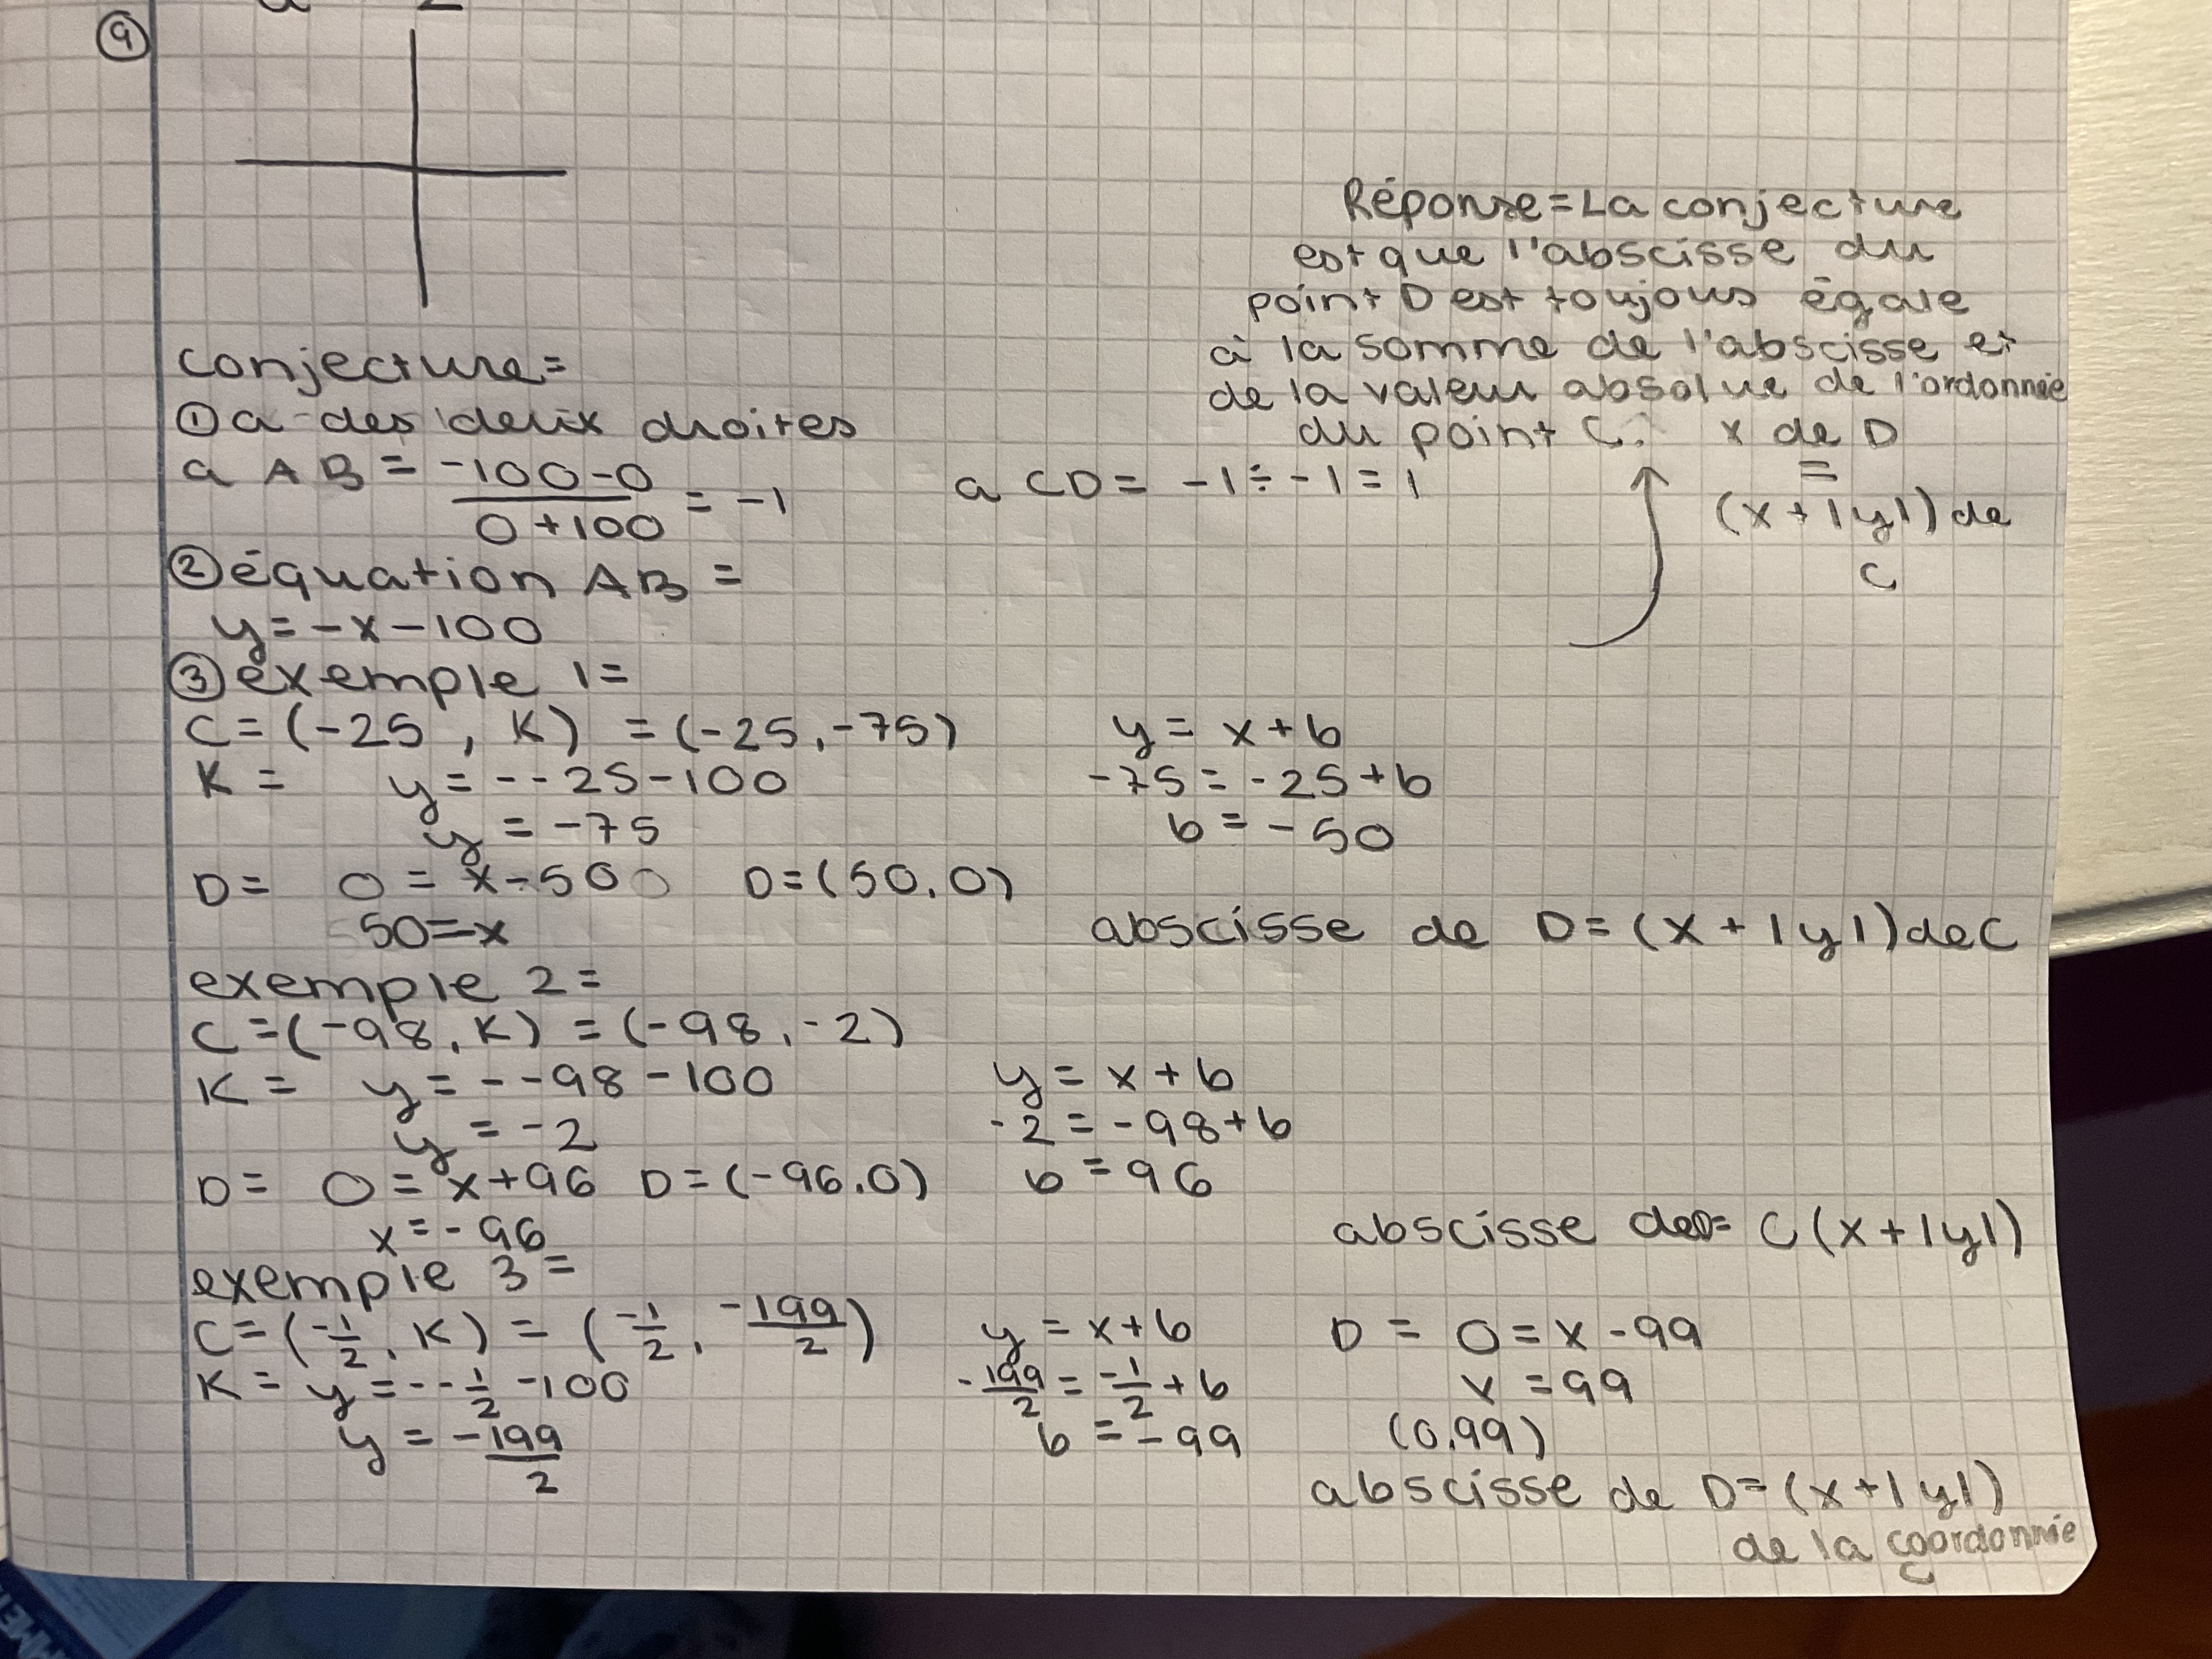 9
Réponse = La conjecture
est que l'abscisse du
point D est toujous égale
à la somme de l'abscisse et
de la valeur absolue de l'ordonnée
du point C. x de D
=
(x + |y|) de
C
conjecture =
① a des deux droites
a AB = -100-0 / 0+100 = -1 a CD = -1 ÷ -1 = 1
② équation AB =
y = -x - 100
③ exemple 1 =
C = (-25, K) = (-25, -75) y = x + b
K = y = --25-100 -75 = -25 + b
y = -75 b = -50
D = 0 = x-50 D = (50,0)
50 = x abscisse de D = (x + |y|) de C
exemple 2 =
C = (-98, K) = (-98, -2)
K = y = --98-100 y = x + b
y = -2 -2 = -98 + b
D = 0 = x+96 D = (-96,0) b = 96
x = -96 abscisse de D = C (x + |y|)
exemple 3 =
C = (-1/2, K) = (-1/2, -199/2) y = x + b D = 0 = x - 99
K = y = --1/2 -100 -199/2 = -1/2 + b x = 99
y = -199/2 b = -99 (0,99)
abscisse de D = (x + |y|)
de la coordonnée
C